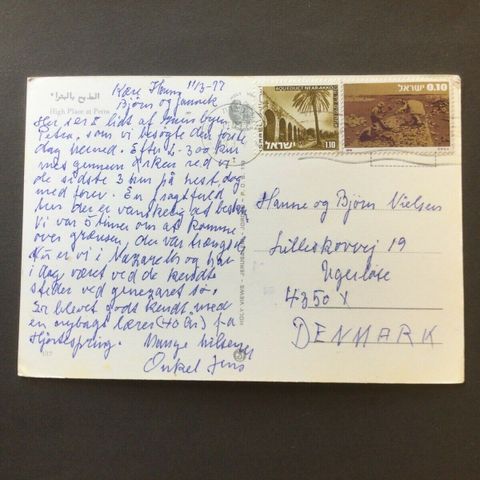 المذبح بالبتراء
High Place at Petra
Kære Hanne 11/3-77
Bjørn og Jannick
Her ser I lidt af
Petra, som vi besøgte den første
dag herned. Efter 4-300 km
kørsel gennem ørken red vi
de sidste 3 km på hest dag
med fører. En sagnfuld
tur der er vanskelig at beskrive
Vi var 5 timer om at komme
over grænsen, der var trængsel
Nu er vi i Nazareth og har
i dag været ved de kendte
steder ved genezaret sø.
Er blevet gods kendt med
en nybagt lærer (40 år) fra
Hjortespring. Mange hilsener
Onkel Jens
HOLY VIEWS - JERUSALEM - JORDAN - P.O.B.
AQUEDUCT NEAR AKKO
ישראל
1.10
ישראל 0.10
Hanne og Bjørn Nielsen
Lilleskovvej 19
Ugerløse
4350
DENMARK